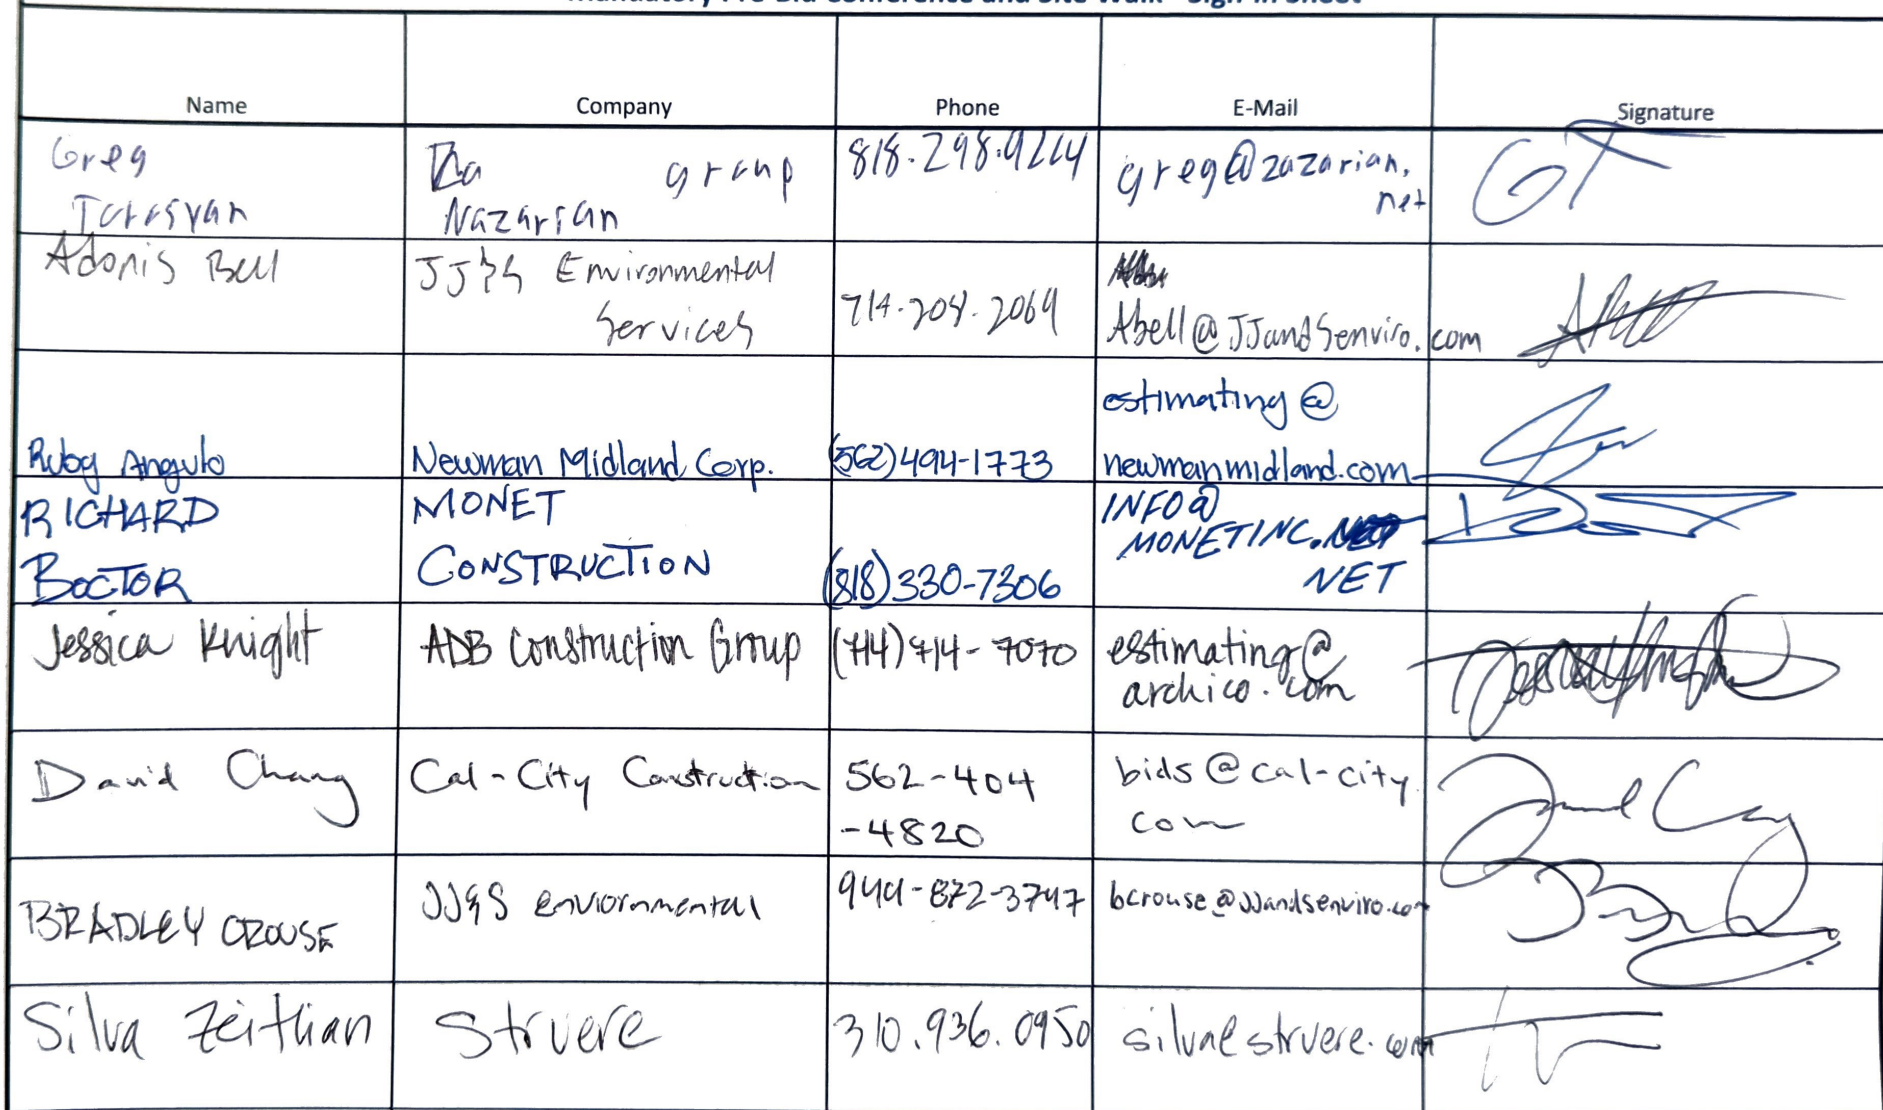 Name Company Phone E-Mail Signature
Greg
Torosyan
Za group
Nazarian
818.298.9264
greg@zazarian.
net
Adonis Bell
JJ&S Environmental
Services
714.208.2069
Abell@JJandSenviro.com
Ruby Angulo
Newman Midland Corp.
(562)494-1773
estimating@
newmanmidland.com
RICHARD
BOCTOR
MONET
CONSTRUCTION
(818)330-7306
INFO@
MONETINC.
NET
Jessica Knight
ADB Construction Group
(714)714-7070
estimating@
archico.com
David Chang
Cal-City Construction
562-404
-4820
bids@cal-city.
com
BRADLEY CROUSE
JJ&S enviornmental
949-872-3747
bcrouse@JJandsenviro.com
Silva Zeitlian
Struere
310.936.0950
silva@struere.com